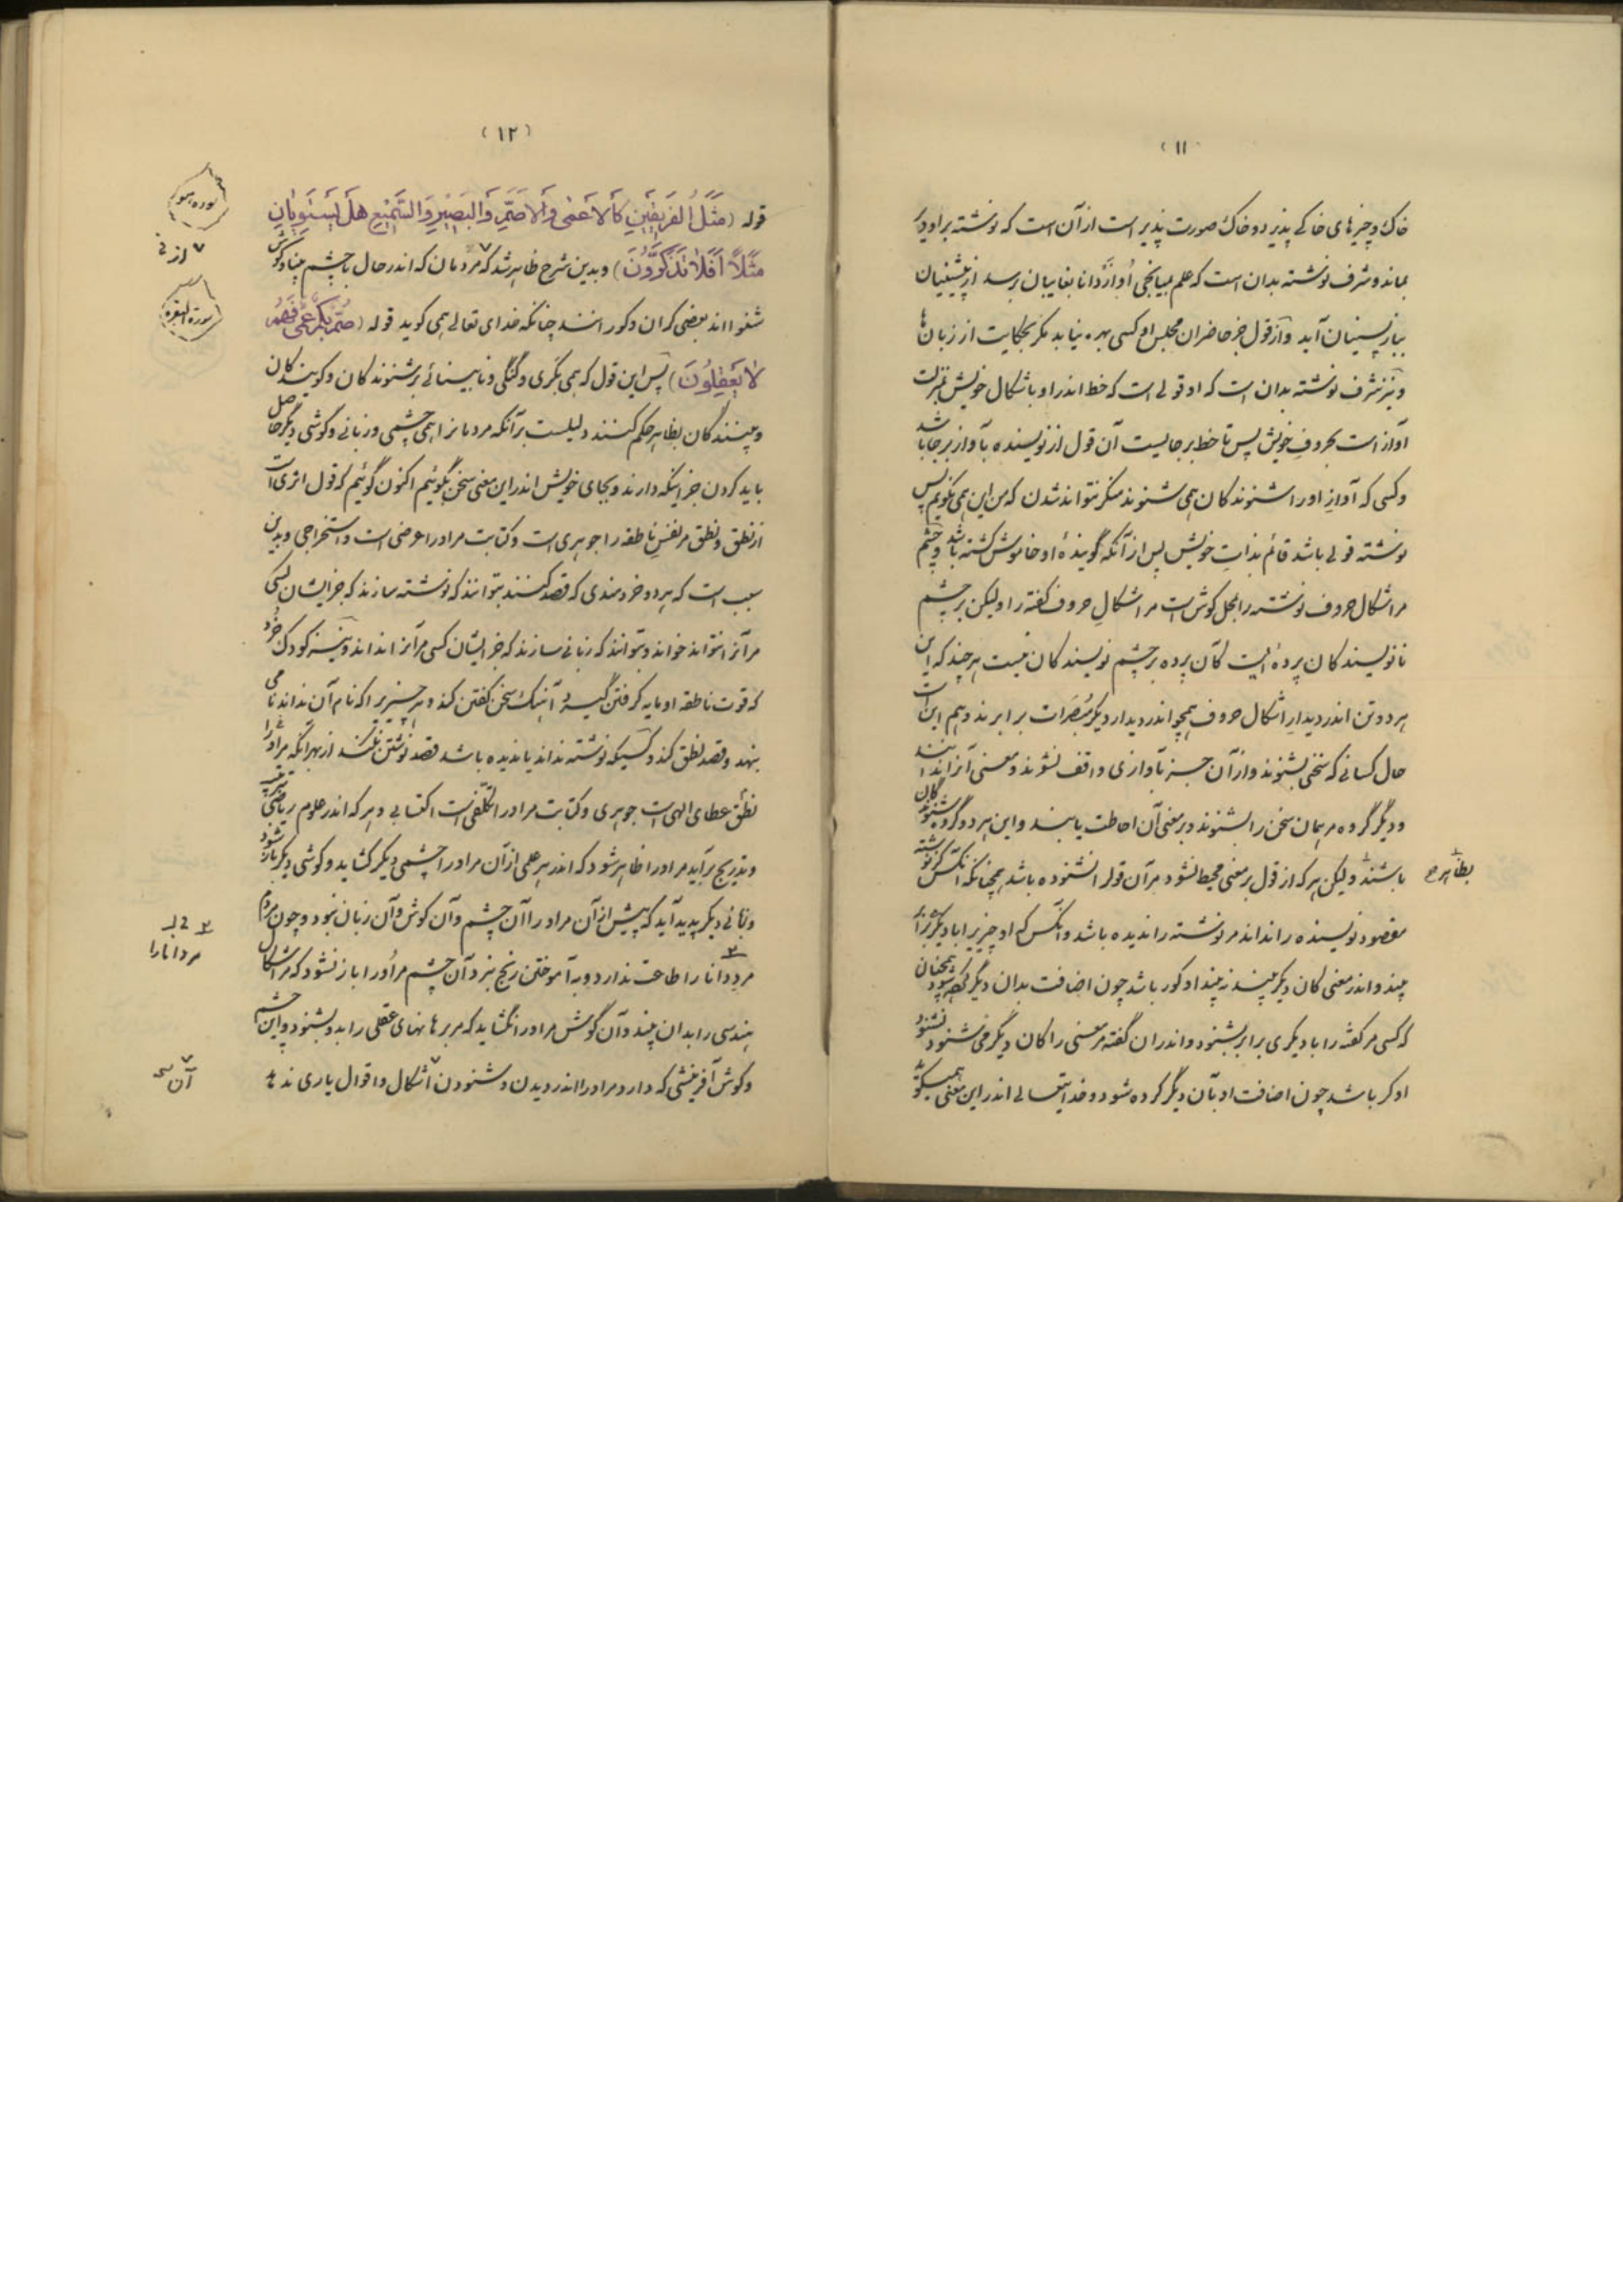 (۱۱)
خاک و چیزهای خاکی پذیرد و خاک صورت پذیر است از آن است که نوشته بر او دیر
بماند و شرف نوشته بدان است که علم بمیانجی او از دانا بغایبان برسد از پیشینیان
بباز پسینیان آید و از قول جز حاضران مجلس او کسی بهره نیابد مگر بحکایت از زبان‌ها
و نیز شرف نوشته بدان است که او قولی است که خط اندر او باشکال خویش بمنزلت
آواز است بحروف خویش پس تا خط بر جایست آن قول از نویسنده بآواز بر جا باشد
و کسی که آواز او را شنوندگان همی شنوند منکر نتواند شدن که من این همی نگویم پس
نوشته قولی باشد قائم بذات خویش پس از آنکه گویندهٔ او خاموش گشته باشد و چشم
مر اشکال حروف نوشته را بمحل گوش است مر اشکال حروف گفته را ولیکن بر چشم
نانویسندگان پردهٔ است کان پرده بر چشم نویسندگان نیست هر چند که این
هر دو تن اندر دیدار اشکال حروف همچو اندر دیدار دیگر مبصرات برابرند و هم این است
حال کسانی که سخنی بشنوند و از آن جز بآوازی واقف نشوند و معنی آنرا ندانند
و دیگر گروه مر همان سخن را بشنوند و بر معنی آن احاطت یابند و این هر دو گروه شنوندگان
باشند ولیکن هر که از قول بر معنی محیط نشود مر آن قول را نشنوده باشد همچنانکه آنکس کز نوشته
بظاهر ح
مقصود نویسنده را نداند مر نوشته را ندیده باشد و آنکس که او چیزیرا با دیگری برابر
بیند و اندر معنی کان دیگر بیند نبیند او کور باشد چون اضافت بدان دیگر کرده شود همچنان
که کسی مر گفته را با دیگری برابر بشنود و اندر آن گفته مر معنی را کان دیگر می شنود نشنود
او کر باشد چون اضافت او بآن دیگر کرده شود و خدایتعالی اندر این معنی همیگوید
(۱۲)
قوله (مَثَلُ الفَریقَینِ کَالاَعمٰی وَالاَصَمِّ وَالبَصیرِ وَالسَّمیعِ هَل یَستَوِیانِ
سوره هود
مَثَلاً اَفَلا تَذَکَّرُونَ) و بدین شرح ظاهر شد که مردمان که اندر حال با چشم بینا و گوش
شنوا اند بعضی کران و کورانند چنانکه خدای تعالی همی گوید قوله (صُمٌّ بُکمٌ عُمیٌ فَهُم
سورة البقره
لا یَعقِلُونَ) پس این قول که همی بکری و گنگی و نابینائی بر شنوندگان و گویندگان
و بینندگان بظاهر حکم کنند دلیلست بر آنکه مردمانرا همی چشمی و زبانی و گوشی دیگر حاصل
باید کردن جز اینکه دارند و بجای خویش اندر این معنی سخن بگوئیم اکنون گوئیم که قول اثری است
از نطق و نطق مر نفس ناطقه را جوهری است و کتابت مر او را عرضی است و استخراجی و بدین
سبب است که هر دو خردمندی که قصد کنند بتوانند که نوشته سازند که جز ایشان کسی
مر آنرا نتواند خواند و نتوانند که زبانی سازند که جز ایشان کسی مر آنرا نداند و نیز کودک خرد
که قوت ناطقه او مایه گرفتن گیرد آهنگ سخن گفتن کند و هر چیزیرا که نام آن نداند نامی
بنهد و قصد نطق کند و کسیکه نوشته نداند یا ندیده باشد قصد نوشتن نکند از بهر آنکه مر او را
نطق عطای الهی است جوهری و کتابت مر او را تکلفی است اکتسابی و هر که اندر علوم ریاضی
و بتدریج برآید مر او را ظاهر شود که اندر هر علمی از آن مر او را چشمی دیگر گشاید و گوشی دیگر باز شود
و زبانی دیگر پدید آید که پیش از آن مر او را آن چشم و آن گوش و آن زبان نبود و چون مردم
مر دانا را طاعت ندارد و به آموختن رنج نبرد آن چشم مر او را باز نشود که مر اشکال
مر دانا را
هندسی را بدان بیند و آن گوش مر او را نگشاید که مر برهانهای عقلی را بدو بشنود و این چشم
و گوش آفرینشی که دارد مر او را اندر دیدن و شنودن اشکال و اقوال یاری ندهد
آن